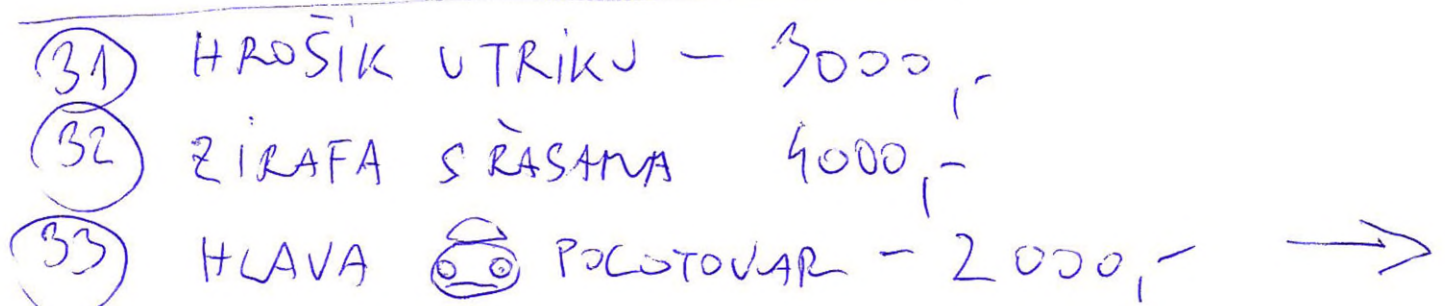 31 HROŠIK UTRIKU - 3000,-
32 ZIRAFA S ŘASAMA 4000,-
33 HLAVA POLOTOVAR - 2000,-